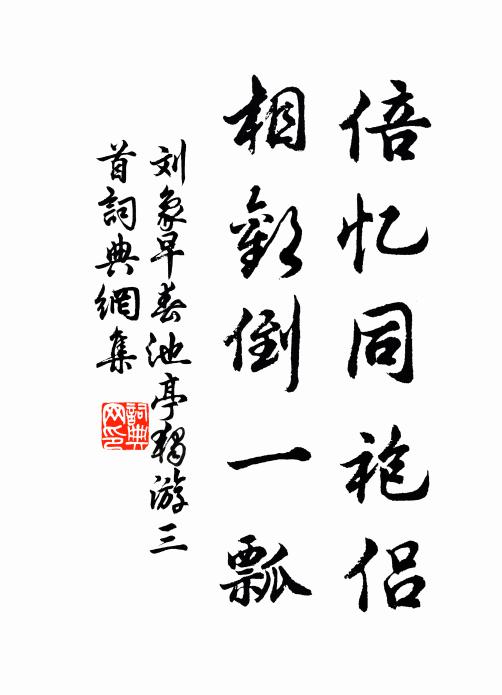 倍忆同袍侣
相歡倒一瓢
刘象早春池亭獨游三
首詞典網集
詞典网印